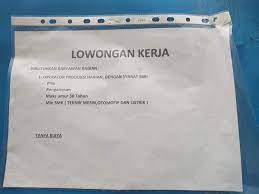 LOWONGAN KERJA
DIBUTUHKAN KARYAWAN BAGIAN :
1. OPERATOR PRODUKSI HARIAN, DENGAN SYARAT SBB:
- Pria
- Pengalaman
- Maks umur 30 Tahun
- Min SMK ( TEKNIK MESIN, OTOMOTIF DAN LISTRIK )
TANPA BIAYA